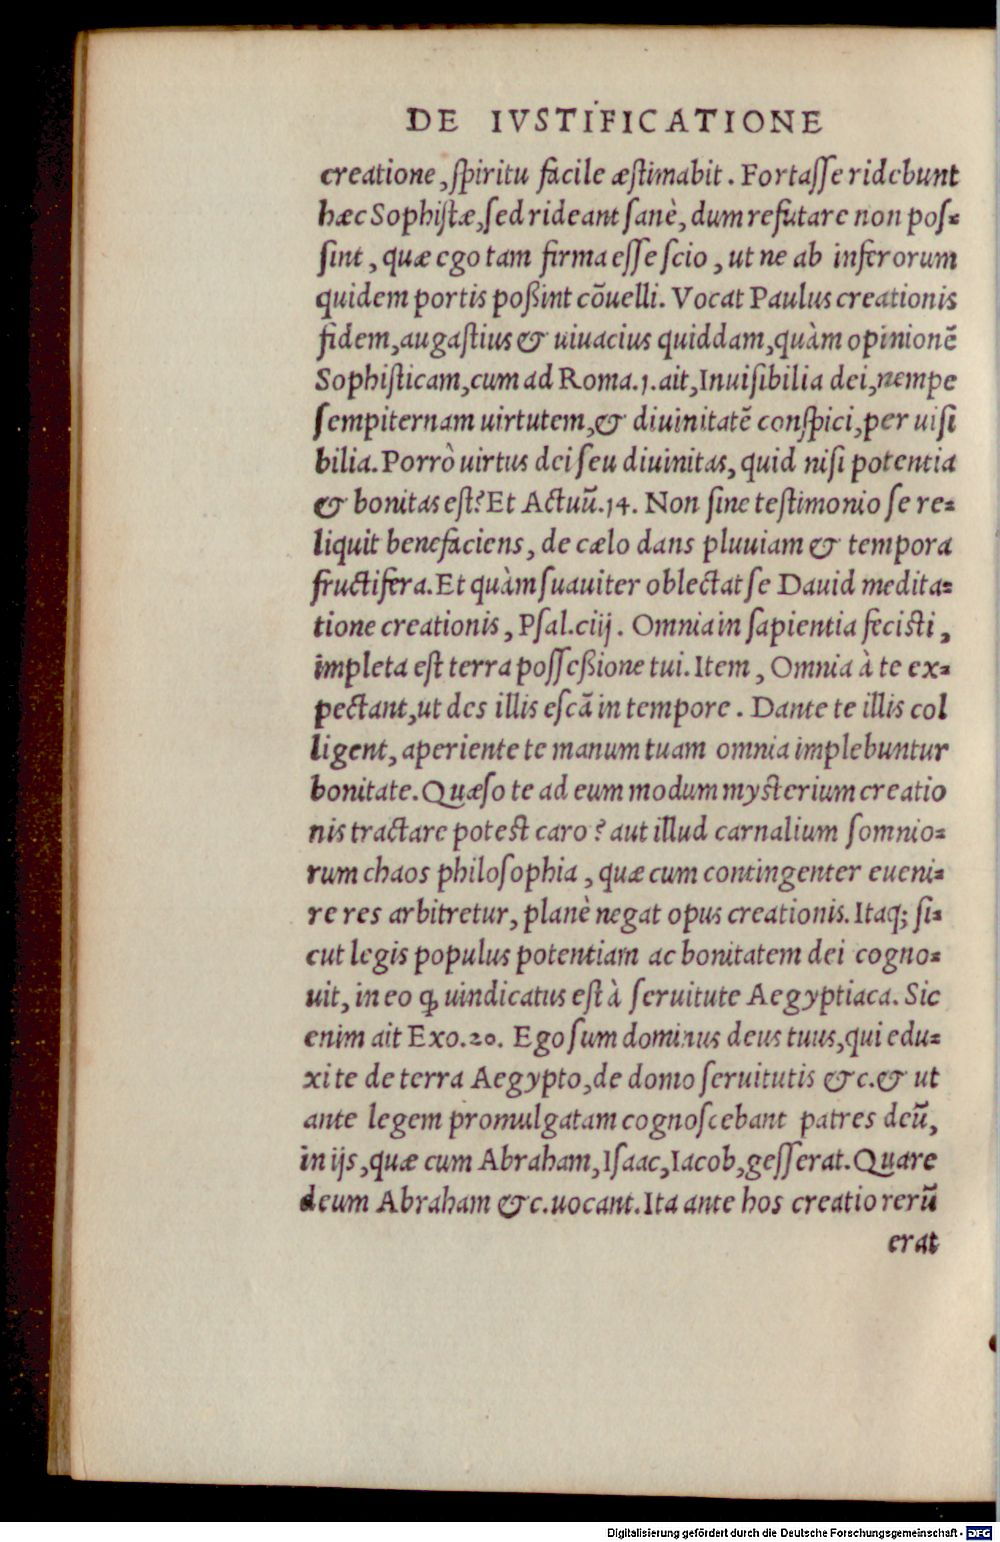 DE IVSTIFICATIONE
creatione, spiritu facile æstimabit. Fortasse ridebunt
hæc Sophistæ, sed rideant sanè, dum refutare non pos=
sint, quæ ego tam firma esse scio, ut ne ab inferorum
quidem portis poßint cõuelli. Vocat Paulus creationis
fidem, augastius & uiuacius quiddam, quàm opinionẽ
Sophisticam, cum ad Roma.1. ait, Inuisibilia dei, nempe
sempiternam uirtutem, & diuinitatẽ conspici, per uisi
bilia. Porrò uirtus dei seu diuinitas, quid nisi potentia
& bonitas est? Et Actuũ.14. Non sine testimonio se re=
liquit benefaciens, de cælo dans pluuiam & tempora
fructifera. Et quàm suauiter oblectat se Dauid medita=
tione creationis, Psal.ciij. Omnia in sapientia fecisti,
impleta est terra posseßione tui. Item, Omnia à te ex=
pectant, ut des illis escã in tempore. Dante te illis col
ligent, aperiente te manum tuam omnia implebuntur
bonitate. Quæso te ad eum modum mysterium creatio
nis tractare potest caro? aut illud carnalium somnio=
rum chaos philosophia, quæ cum contingenter eueni=
re res arbitretur, planè negat opus creationis. Itaq; si=
cut legis populus potentiam ac bonitatem dei cogno=
uit, in eo ꝙ uindicatus est à seruitute Aegyptiaca. Sic
enim ait Exo.20. Ego sum dominus deus tuus, qui edu=
xi te de terra Aegypto, de domo seruitutis &c. & ut
ante legem promulgatam cognoscebant patres deũ,
in ijs, quæ cum Abraham, Isaac, Iacob, gesserat. Quare
deum Abraham &c. uocant. Ita ante hos creatio rerũ
erat
Digitalisierung gefördert durch die Deutsche Forschungsgemeinschaft - DFG